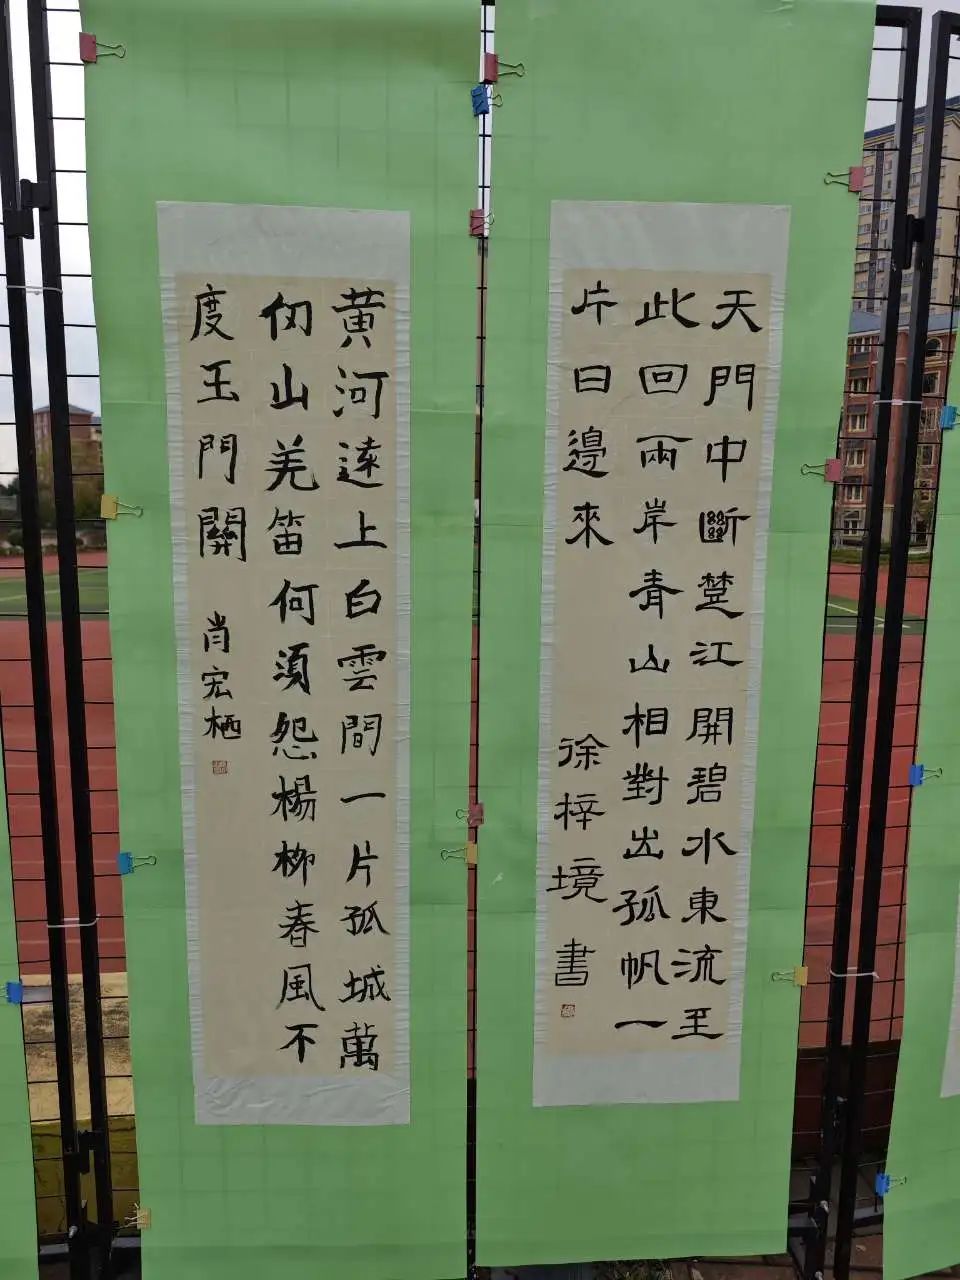 天門中斷楚江開碧水東流至
此回兩岸青山相對出孤帆一
片日邊來 徐梓境書
黄河遠上白雲間一片孤城萬
仞山羌笛何須怨楊柳春風不
度玉門關 肖宏栖